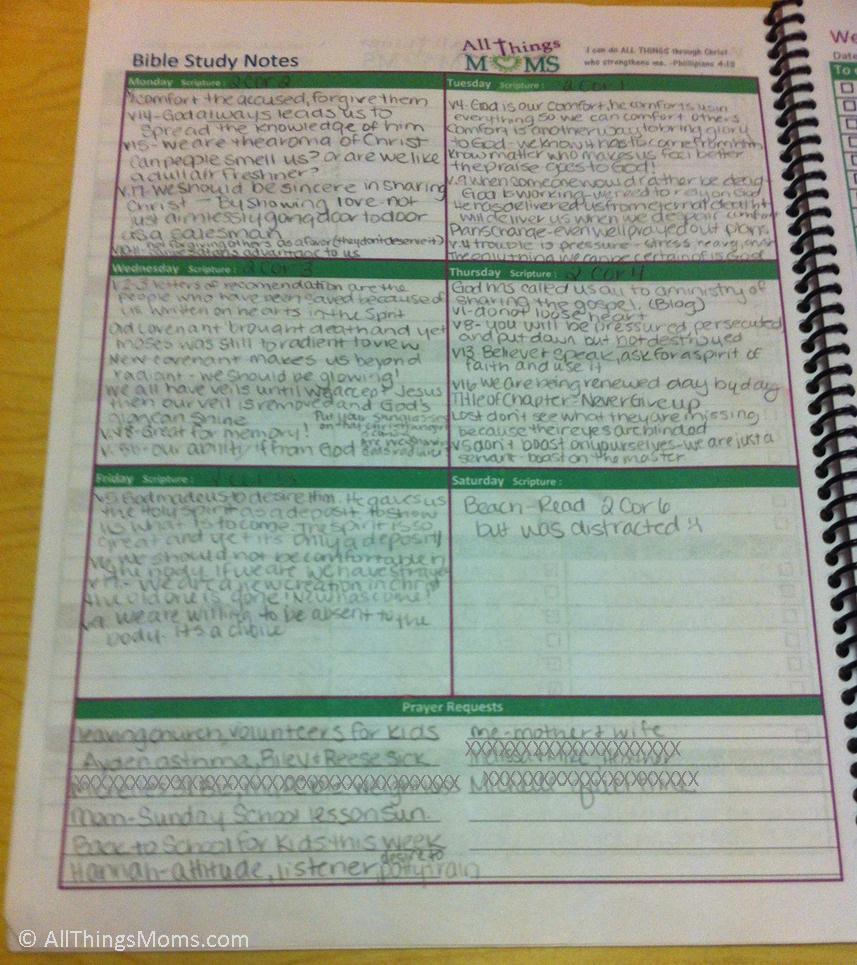 Bible Study Notes
All Things
MOMS
I can do ALL THINGS through Christ
who strengthens me. -Phillipians 4:13
Monday Scripture: 2 Cor 2
comfort the accused, forgive them
v14-God always leads us to
spread the knowledge of him
v15-we are the aroma of Christ
can people smell us? or are we like
a dull air freshner?
v.17 we should be sincere in sharing
Christ - By showing love-not
just aimlessly going door to door
as a salesman
not forgiving others as a favor (they don't deserve it)
advantage to us
Tuesday Scripture: 2 Cor 1
v4-God is our comfort, he comforts us in
everything so we can comfort others
Comfort is another way to bring glory
to God-we know it has to come from him
Know matter who makes us feel better
the praise goes to God!
v.9 when someone would rather be dead-
God is working-we need to rely on God
He has delivered us from eternal death &
will deliver us when we despair comfort
Plans change-even well prayed out plans
v.4 trouble is pressure - stress heavy
The only thing we can be certain of is God
Wednesday Scripture: 2 Cor 3
v.2-3 letters of recomendation are the
people who have been saved because of
us written on hearts in the Spirit
Old covenant brought death and yet
moses was still to radient to view
New covenant makes us beyond
radiant-we should be glowing!
we all have veils until we accept Jesus
then our veil is removed and God's
glory can shine
Put your sunglasses
on
v.18-Great for memory!
v.5b-our ability if from God
Thursday Scripture: 2 Cor 4
God has called us all to a ministry of
sharing the gospel. (Blog)
v1-do not loose heart
v8-you will be pressured, persecuted
and put down but not destroyed
v13 Believer speak, ask for a spirit of
faith and use it
v16 we are being renewed day by day
Title of chapter-Never Give up
Lost don't see what they are missing
because their eyes are blinded
v5 don't boast on yourselves-we are just a
servant-boast on the master
Friday Scripture:
v5 God made us to desire Him. He gave us
the Holy Spirit as a deposit to show
us what is to come. The spirit is so
great and yet its only a deposit!
we should not be comfortable in
the body. If we are we have strayed
v17- we are a new creation in Christ
the old one is gone! New has come!
we are willing to be absent to the
body-its a choice
Saturday Scripture:
Beach-Read 2 Cor 6
but was distracted :(
Prayer Requests
leaving church, volunteers for kids
Ayden asthma, Riley & Reese sick
XXXXXXXXXXXXXXXXXXXXXXXXXXXXXXXX
Mom-Sunday School lesson Sun.
Back to School for kids this week
Hannah-attitude, listener, desire to
potty train
me-mother & wife
XXXXXXXXXXXXXXXXXXXXXX
XXXXXXXXXXXXXXXXXXXXXX
We
Date
To
© AllThingsMoms.com